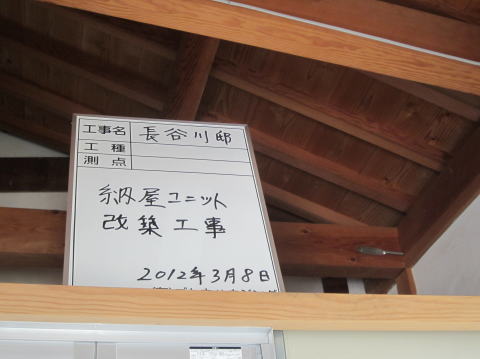 工事名 長谷川邸
工種
測点
納屋ユニット
改築工事
2012年3月8日